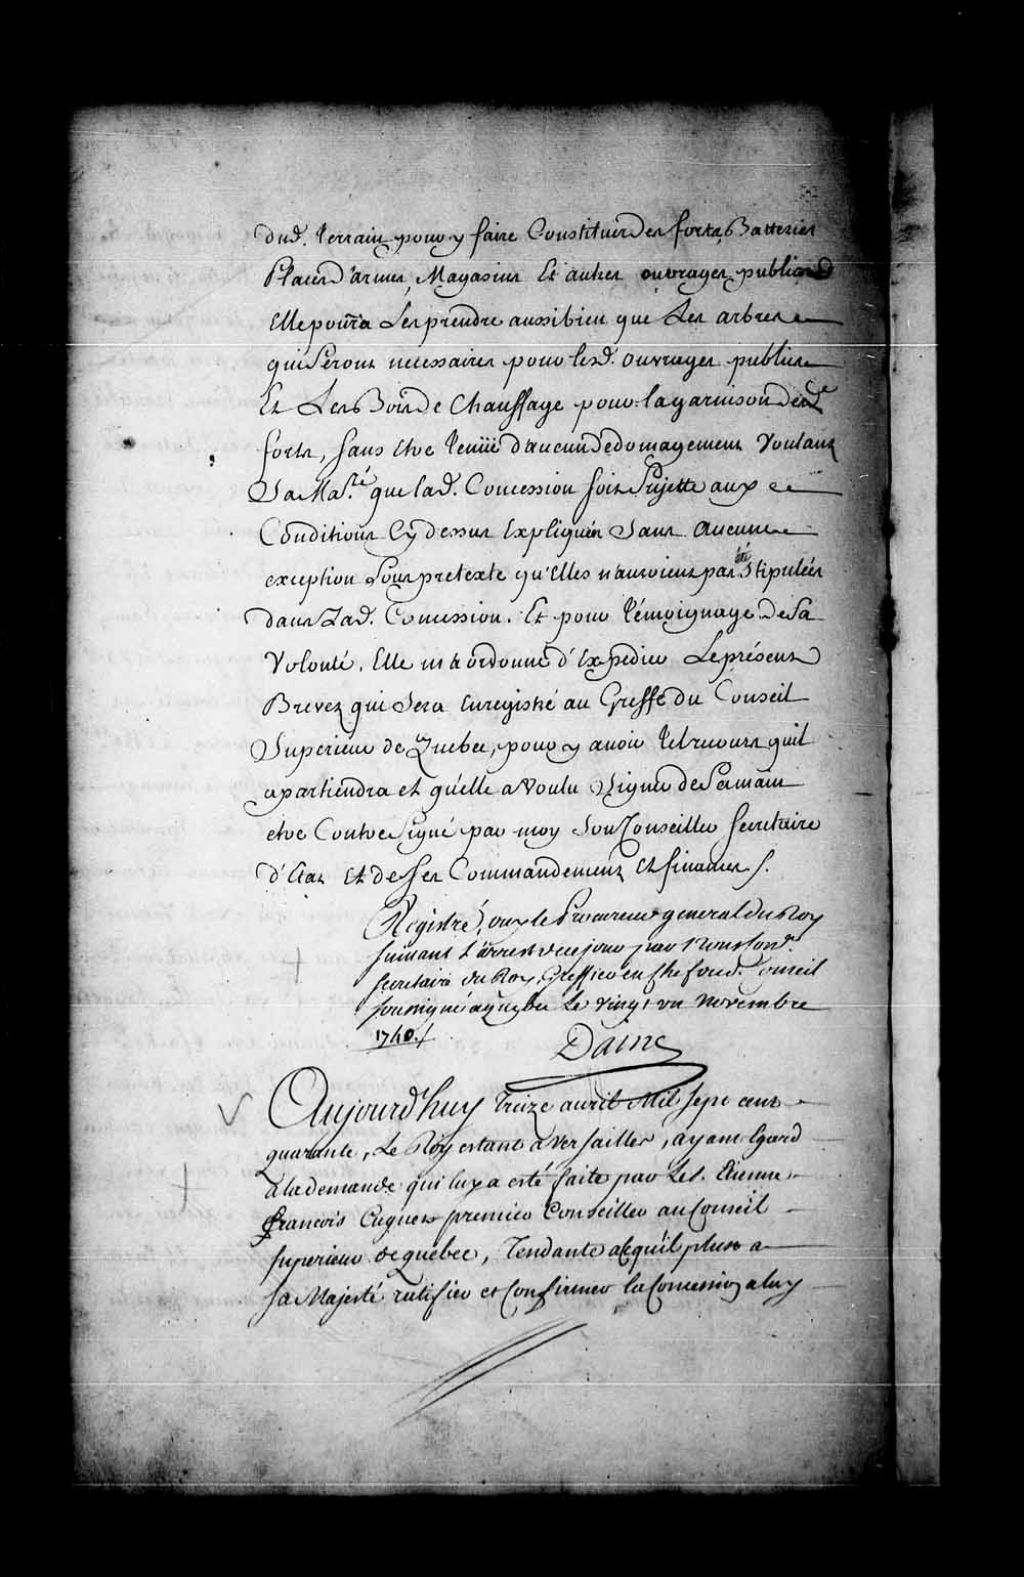 dud. Terrain pour y faire Constituer des forts, Batteries
Places d'armes, Magasins Et autres ouvrages publics
Elle poura Les prendre aussi bien que Les arbres
qui Seront necessaires pour lesd. ouvrages publics
Et Les Bois de Chauffage pour la garnison desd.
forts, sans etre Tenüe d'aucun dedomagement Voulant
Sa Ma.té que lad. Concession soit Sujette aux
Conditions Cy dessus Expliquées Sans aucune
exception Sous pretexte qu'Elles n'auroient pas été Stipulées
dans Lad. Concession. Et pour Témoignage de Sa
Volonté, Elle m'a ordonné d'Expedier Le présent
Brevet qui Sera Enregistré au Greffe du Conseil
Superieur de Quebec, pour y avoir Tel recours quil
apartiendra et qu'elle a Voulu Signer de Sa main
etre ContreSigné par moy Son Conseiller Secretaire
d'Etat Et de Ses Commandemens Et finances /.
Registré, ouy le Procureur general du Roy
suivant L'arrest de ce jour par Nous Con.er
Secretaire du Roy, Greffier en chef aud. Conseil
soussigné a Quebec Le vingt un Novembre
1740./.
Daine
Aujourd'huy Treize avril Mil sept cent
quarante, Le Roy estant a Versailles, ayant Egard
a la demande qui luy a esté faite par Le S. Etienne
francois Cugnet premier Conseiller au Conseil
superieur de quebec, Tendante a ce qu'il plust a
sa Majesté ratifier et Confirmer la Concession a luy